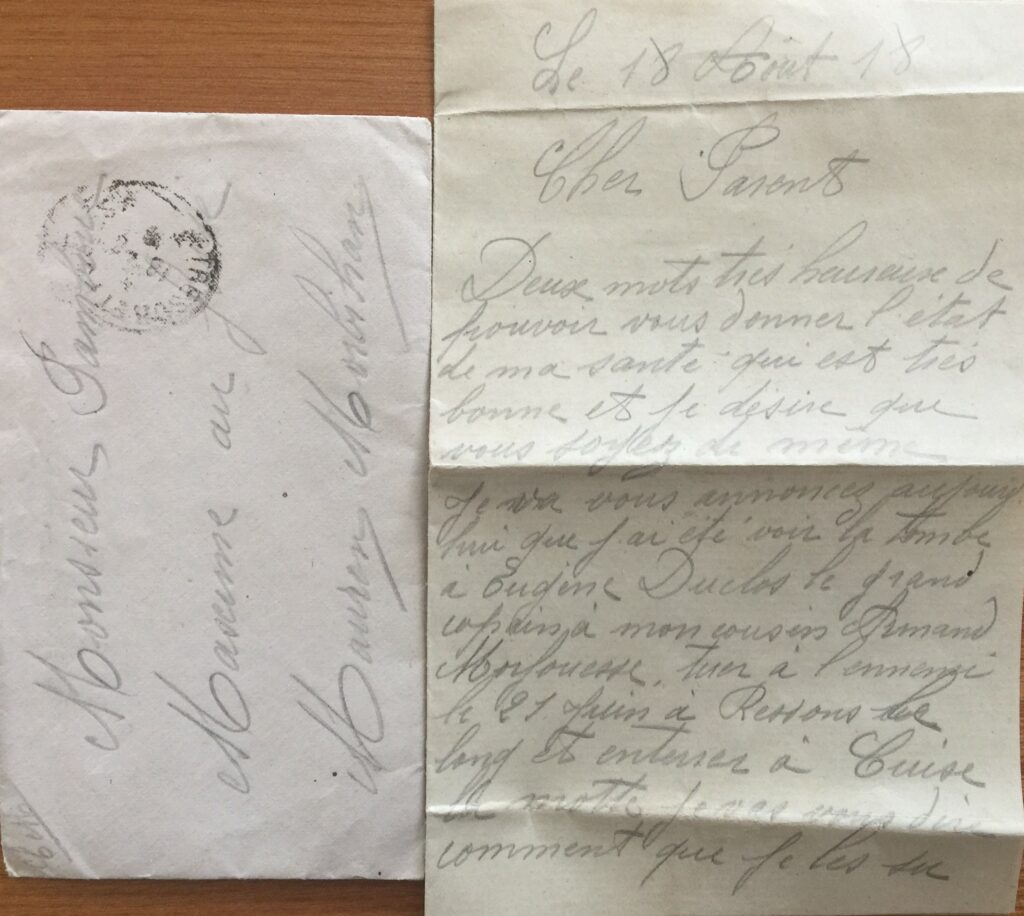 Monsieur
Maxime au
Mauren Montshan
Le 18 Août 18
Cher Parent
Deux mots très heureuse de
pouvoir vous donner l'état
de ma santé qui est très
bonne et je désire que
vous soyez de même
Je va vous annoncez aujourd
hui que j'ai été voir la tombe
à Eugène Duclos le grand
copain à mon cousin Armand
tuer à l'ennemi
le 21 juin à Ressons le
long et enterrer à Cuise
la motte je vas vous dire
comment que je les su